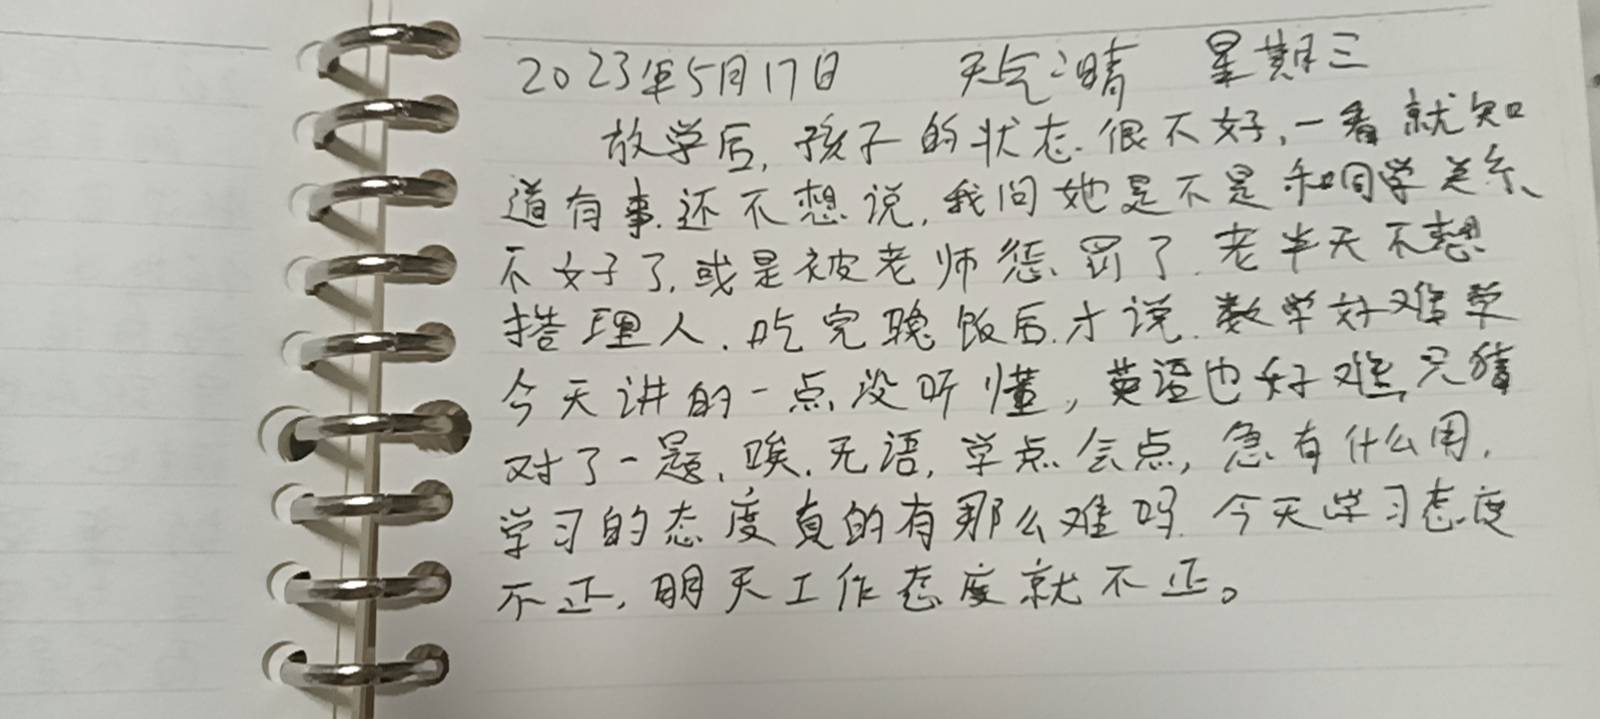 2023年5月17日 天气:晴 星期三
放学后,孩子的状态.很不好,一看就知
道有事.还不想说,我问她是不是和同学关系
不好了,或是被老师惩罚了.老半天不想
搭理人.吃完晚饭后.才说.数学好难学
今天讲的一点没听懂,英语也好难,只猜
对了一题,唉.无语,学点会点,急有什么用,
学习的态度真的有那么难吗.今天学习态度
不正,明天工作态度就不正。